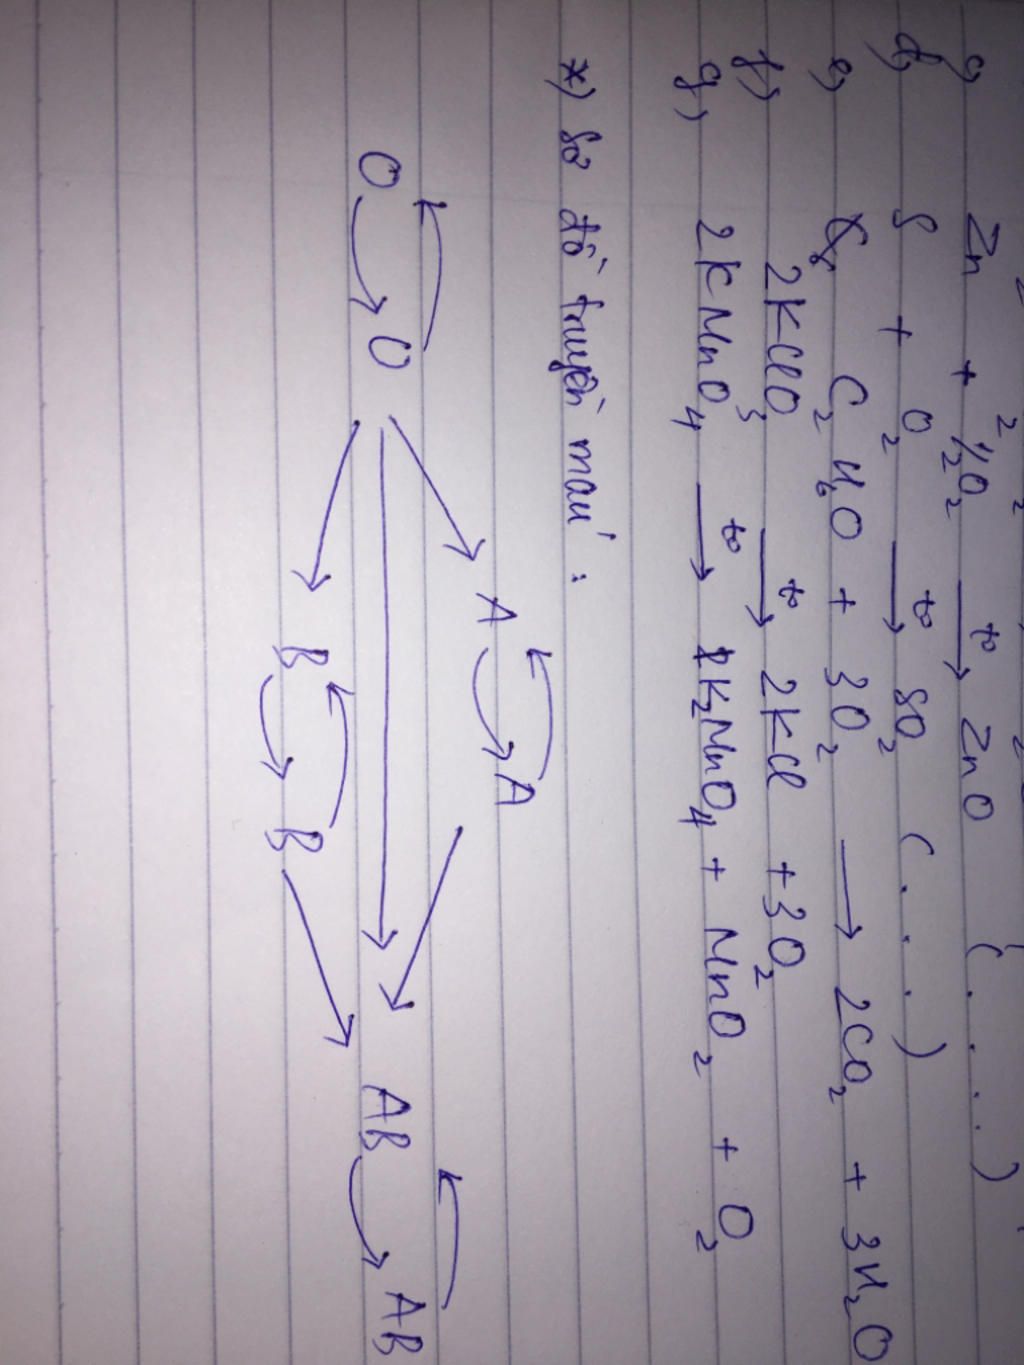 c) Zn + 1/2O₂ —t°→ ZnO (....)
d) S + O₂ —t°→ SO₂ (...)
e) C₂H₆O + 3O₂ → 2CO₂ + 3H₂O
f) 2KClO₃ —t°→ 2KCl + 3O₂
g) 2KMnO₄ —t°→ K₂MnO₄ + MnO₂ + O₂
*) Sơ đồ truyền máu:
A A
O O AB AB
B B